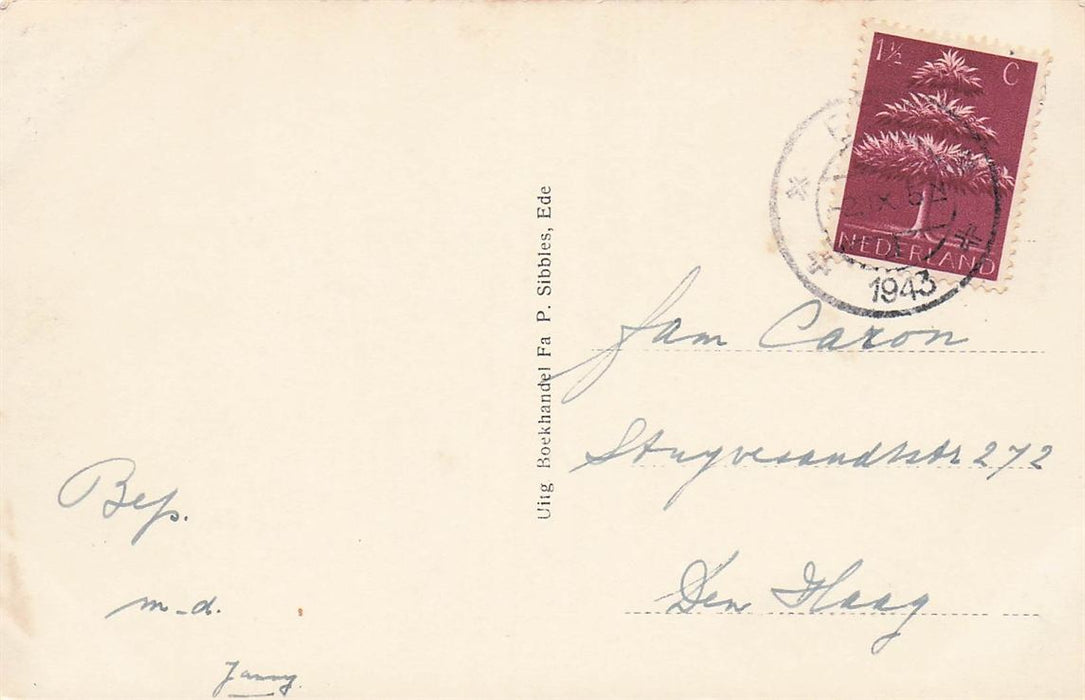 1½ C
NEDERLAND
1943
Uitg Boekhandel Fa P. Sibbles, Ede
Fam Caron
Stuyvesandtstr 272
Den Haag
Bep.
m-d.
Janny.